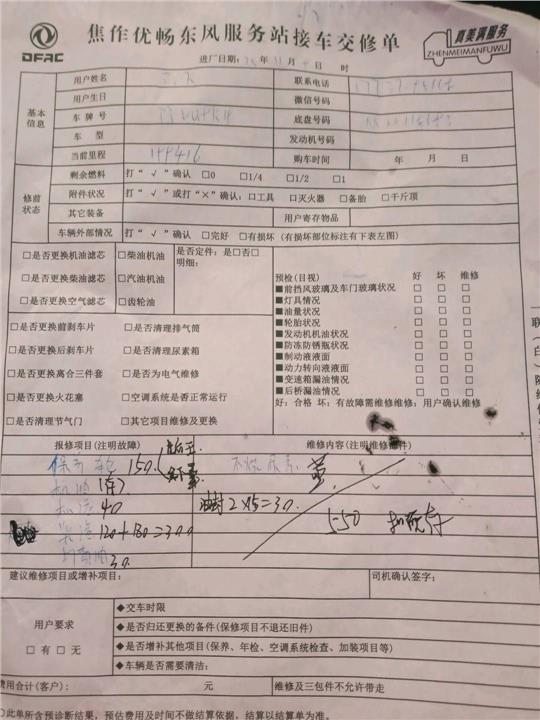 DFAC
焦作优畅东风服务站接车交修单
真美满服务
ZHENMEIMANFUWU
进厂日期: 年 11 月 日 时
基本信息
用户姓名 联系电话
用户生日 微信号码
车牌号 底盘号码
车型 发动机号码
当前里程 144416 购车时间 年 月 日
修前状态
剩余燃料 打“√”确认 □0 □1/4 □1/2 □1
附件状况 打“√”或打“×”确认:□工具 □灭火器 □备胎 □千斤顶
其它装备 用户寄存物品
车辆外部情况 打“√”确认 □完好 □有损坏(有损坏部位标注有下表左图)
□是否更换机油滤芯 □柴油机油 是否定件:是□否□
明细:
□是否更换柴油滤芯 □汽油机油
□是否更换空气滤芯 □齿轮油
□是否更换前刹车片 □是否清理排气筒
□是否更换后刹车片 □是否清理尿素箱
□是否更换离合三件套 □是否为电气维修
□是否更换火花塞 □空调系统是否正常运行
□是否清理节气门 □其它项目维修及更换
预检(目视) 好 坏 维修
■前挡风玻璃及车门玻璃状况 □ □ □
■灯具情况 □ □ □
■油量状况 □ □ □
■轮胎状况 □ □ □
■发动机机油状况 □ □ □
■防冻防锈瓶状况 □ □ □
■制动液液面 □ □ □
■动力转向液液面 □ □ □
■变速箱漏油情况 □ □ □
■后桥漏油情况 □ □ □
好:合格 坏:有故障需维修维修:用户确认维修
报修项目(注明故障) 维修内容(注明维修部件)
保养 150
机油
机滤 40
柴滤 120+180=300
30
油封2×15=30
550
建议维修项目或增补项目: 司机确认签字:
用户要求
□有 □无
◆交车时限
◆是否归还更换的备件(保修项目不退还旧件)
◆是否增补其他项目(保养、年检、空调系统检查、加装项目等)
◆车辆是否需要清洁:
费用合计(客户): 元 维修及三包件不允许带走
○此单所含预诊断结果,预估费用及时间不做结算依据,结算以结算单为准。